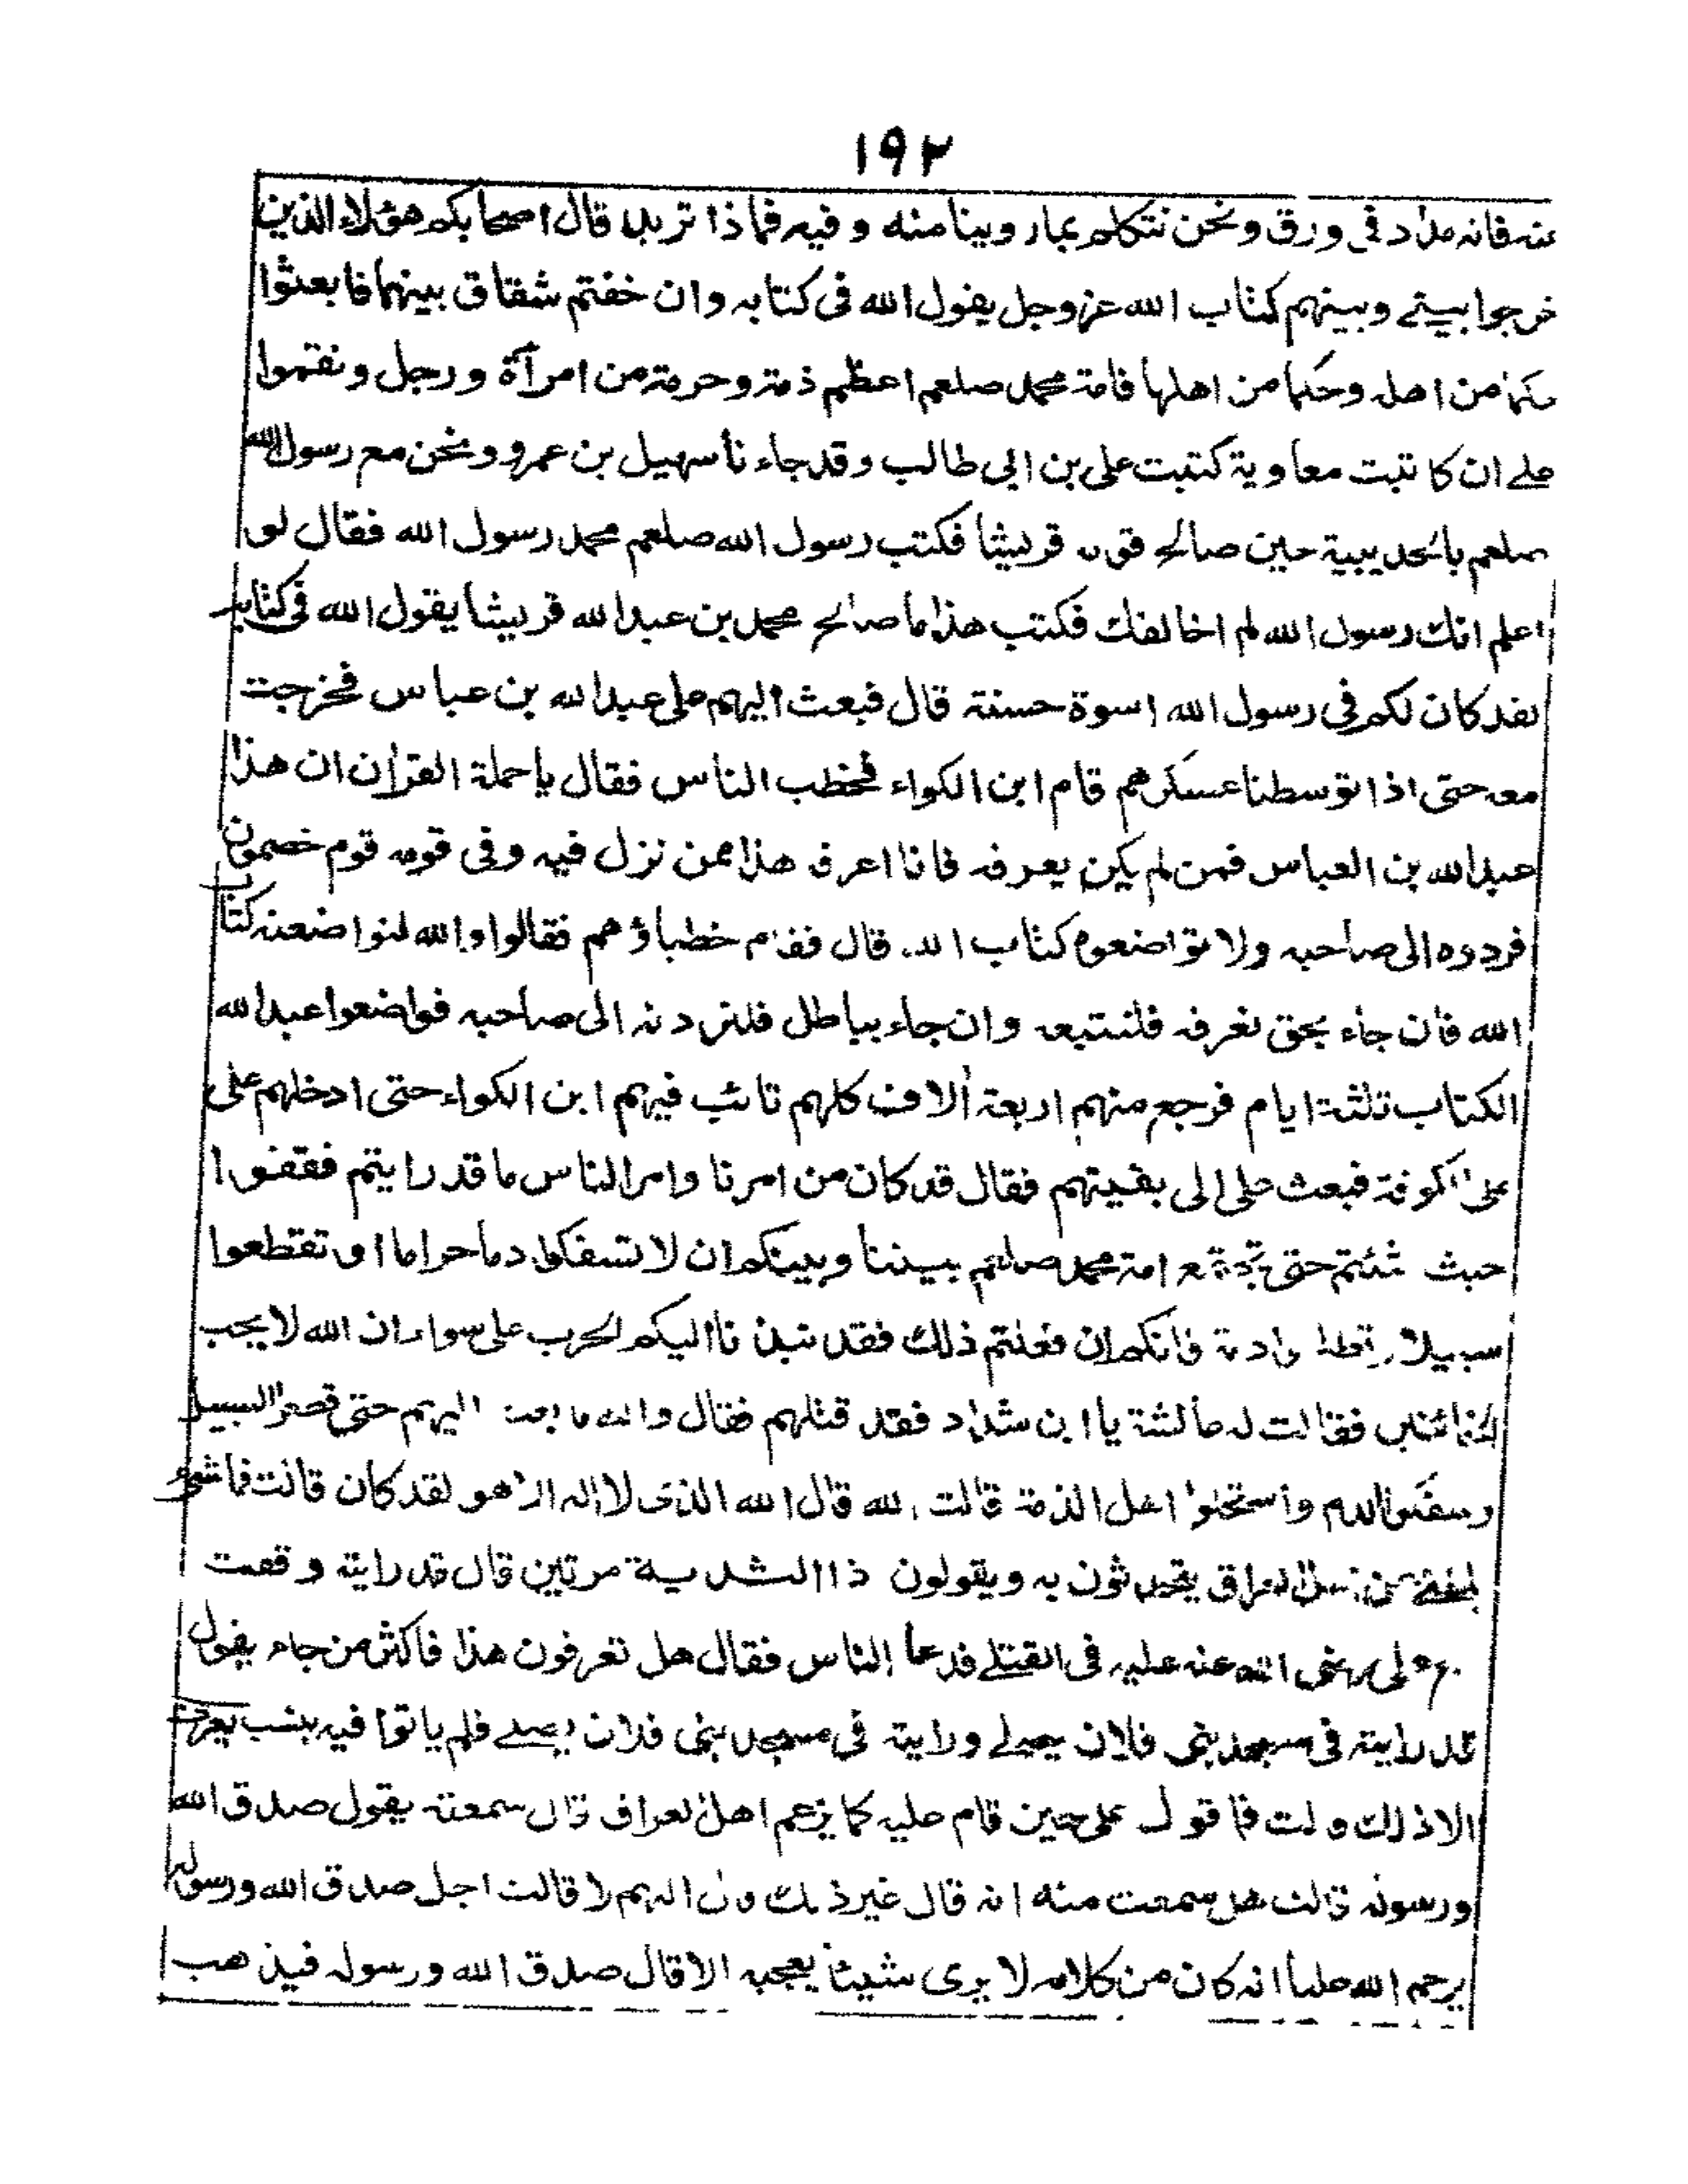 ١٩٢
عنه فانه مداد فى ورق ونحن نتكلم بمار وينا منه و فيه فماذا تريد قال اصحابكم هؤلاء الذين
خرجوا بينى وبينهم كتاب الله عزوجل يقول الله فى كتابه وان خفتم شقاق بينهما فابعثوا
حكما من اهله وحكما من اهلها فامة محمد صلعم اعظم ذمة وحرمة من امرأة ورجل ونقموا
على ان كا تبت معاوية كتبت على بن ابى طالب وقد جاء نا سهيل بن عمرو ونحن مع رسول الله
صلعم بالحديبية حين صالح قومه قريشا فكتب رسول الله صلعم محمد رسول الله فقال لو
اعلم انك رسول الله لم اخالفك فكتب هذا ما صالح محمد بن عبد الله قريشا يقول الله فى كتابه
لقد كان لكم فى رسول الله اسوة حسنة قال فبعث اليهم على عبد الله بن عباس فخرجت
معه حتى اذا توسطنا عسكرهم قام ابن الكواء فخطب الناس فقال يا حملة القران ان هذا
عبد الله بن العباس فمن لم يكن يعرفه فانا اعرف هذا ممن نزل فيه وفى قومه قوم خصمون
فردوه الى صاحبه ولا تواضعوه كتاب الله قال فقام خطباؤهم فقالوا والله لنواضعنه كتاب
الله فان جاء بحق نعرفه فلنتبعه وان جاء بباطل فلنردنه الى صاحبه فواضعوا عبد الله
الكتاب ثلثة ايام فرجع منهم اربعة ألاف كلهم تائب فيهم ابن الكواء حتى ادخلهم على
على الكوفة فبعث على الى بقيتهم فقال قد كان من امرنا وامر الناس ما قد رايتم فقفوا
حيث شئتم حتى تجتمع امة محمد صلعم بيننا وبينكم ان لا تسفكوا دما حراما او تقطعوا
سبيلا فانكم ان فعلتم ذلك فقد نبذ نا اليكم الحرب على سواء ان الله لا يحب
الخائنين فقالت له عائشة يا ابن شداد فقد قتلهم فقال والله ما بعث اليهم حتى قطعوا السبيل
وسفكوا الدم واستحلوا اهل الذمة قالت الله قال الله الذى لا اله الا هو لقد كان قالت فما شئ
بلغنى من اهل العراق يتحدثون به ويقولون ذا الثدية مرتين قال قد رايته وقمت
مع على رضى الله عنه عليه فى القتلى فدعا الناس فقال هل تعرفون هذا فاكثر من جاء يقول
قد رايته فى مسجد بنى فلان يصلى ورايته فى مسجد بنى فلان يصلى فلم ياتوا فيه بثبت يعرف
الا ذلك قالت فما قول على حين قام عليه كما يزعم اهل العراق قال سمعته يقول صدق الله
ورسوله قالت هل سمعت منه انه قال غير ذلك قال اللهم لا قالت اجل صدق الله ورسوله
يرحم الله عليا انه كان من كلامه لا يرى شيئا يعجبه الا قال صدق الله ورسوله فيذهب